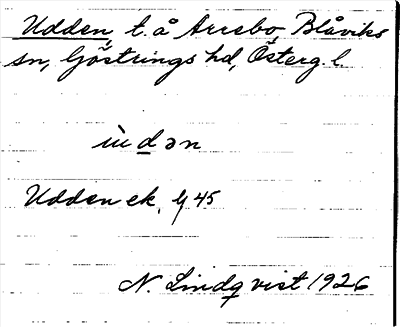 Udden, t. å Arrebo, Blåviks
sn, Göstrings hd, Österg. l.
ùdən
Udden ek. G 45
N. Lindqvist 1926